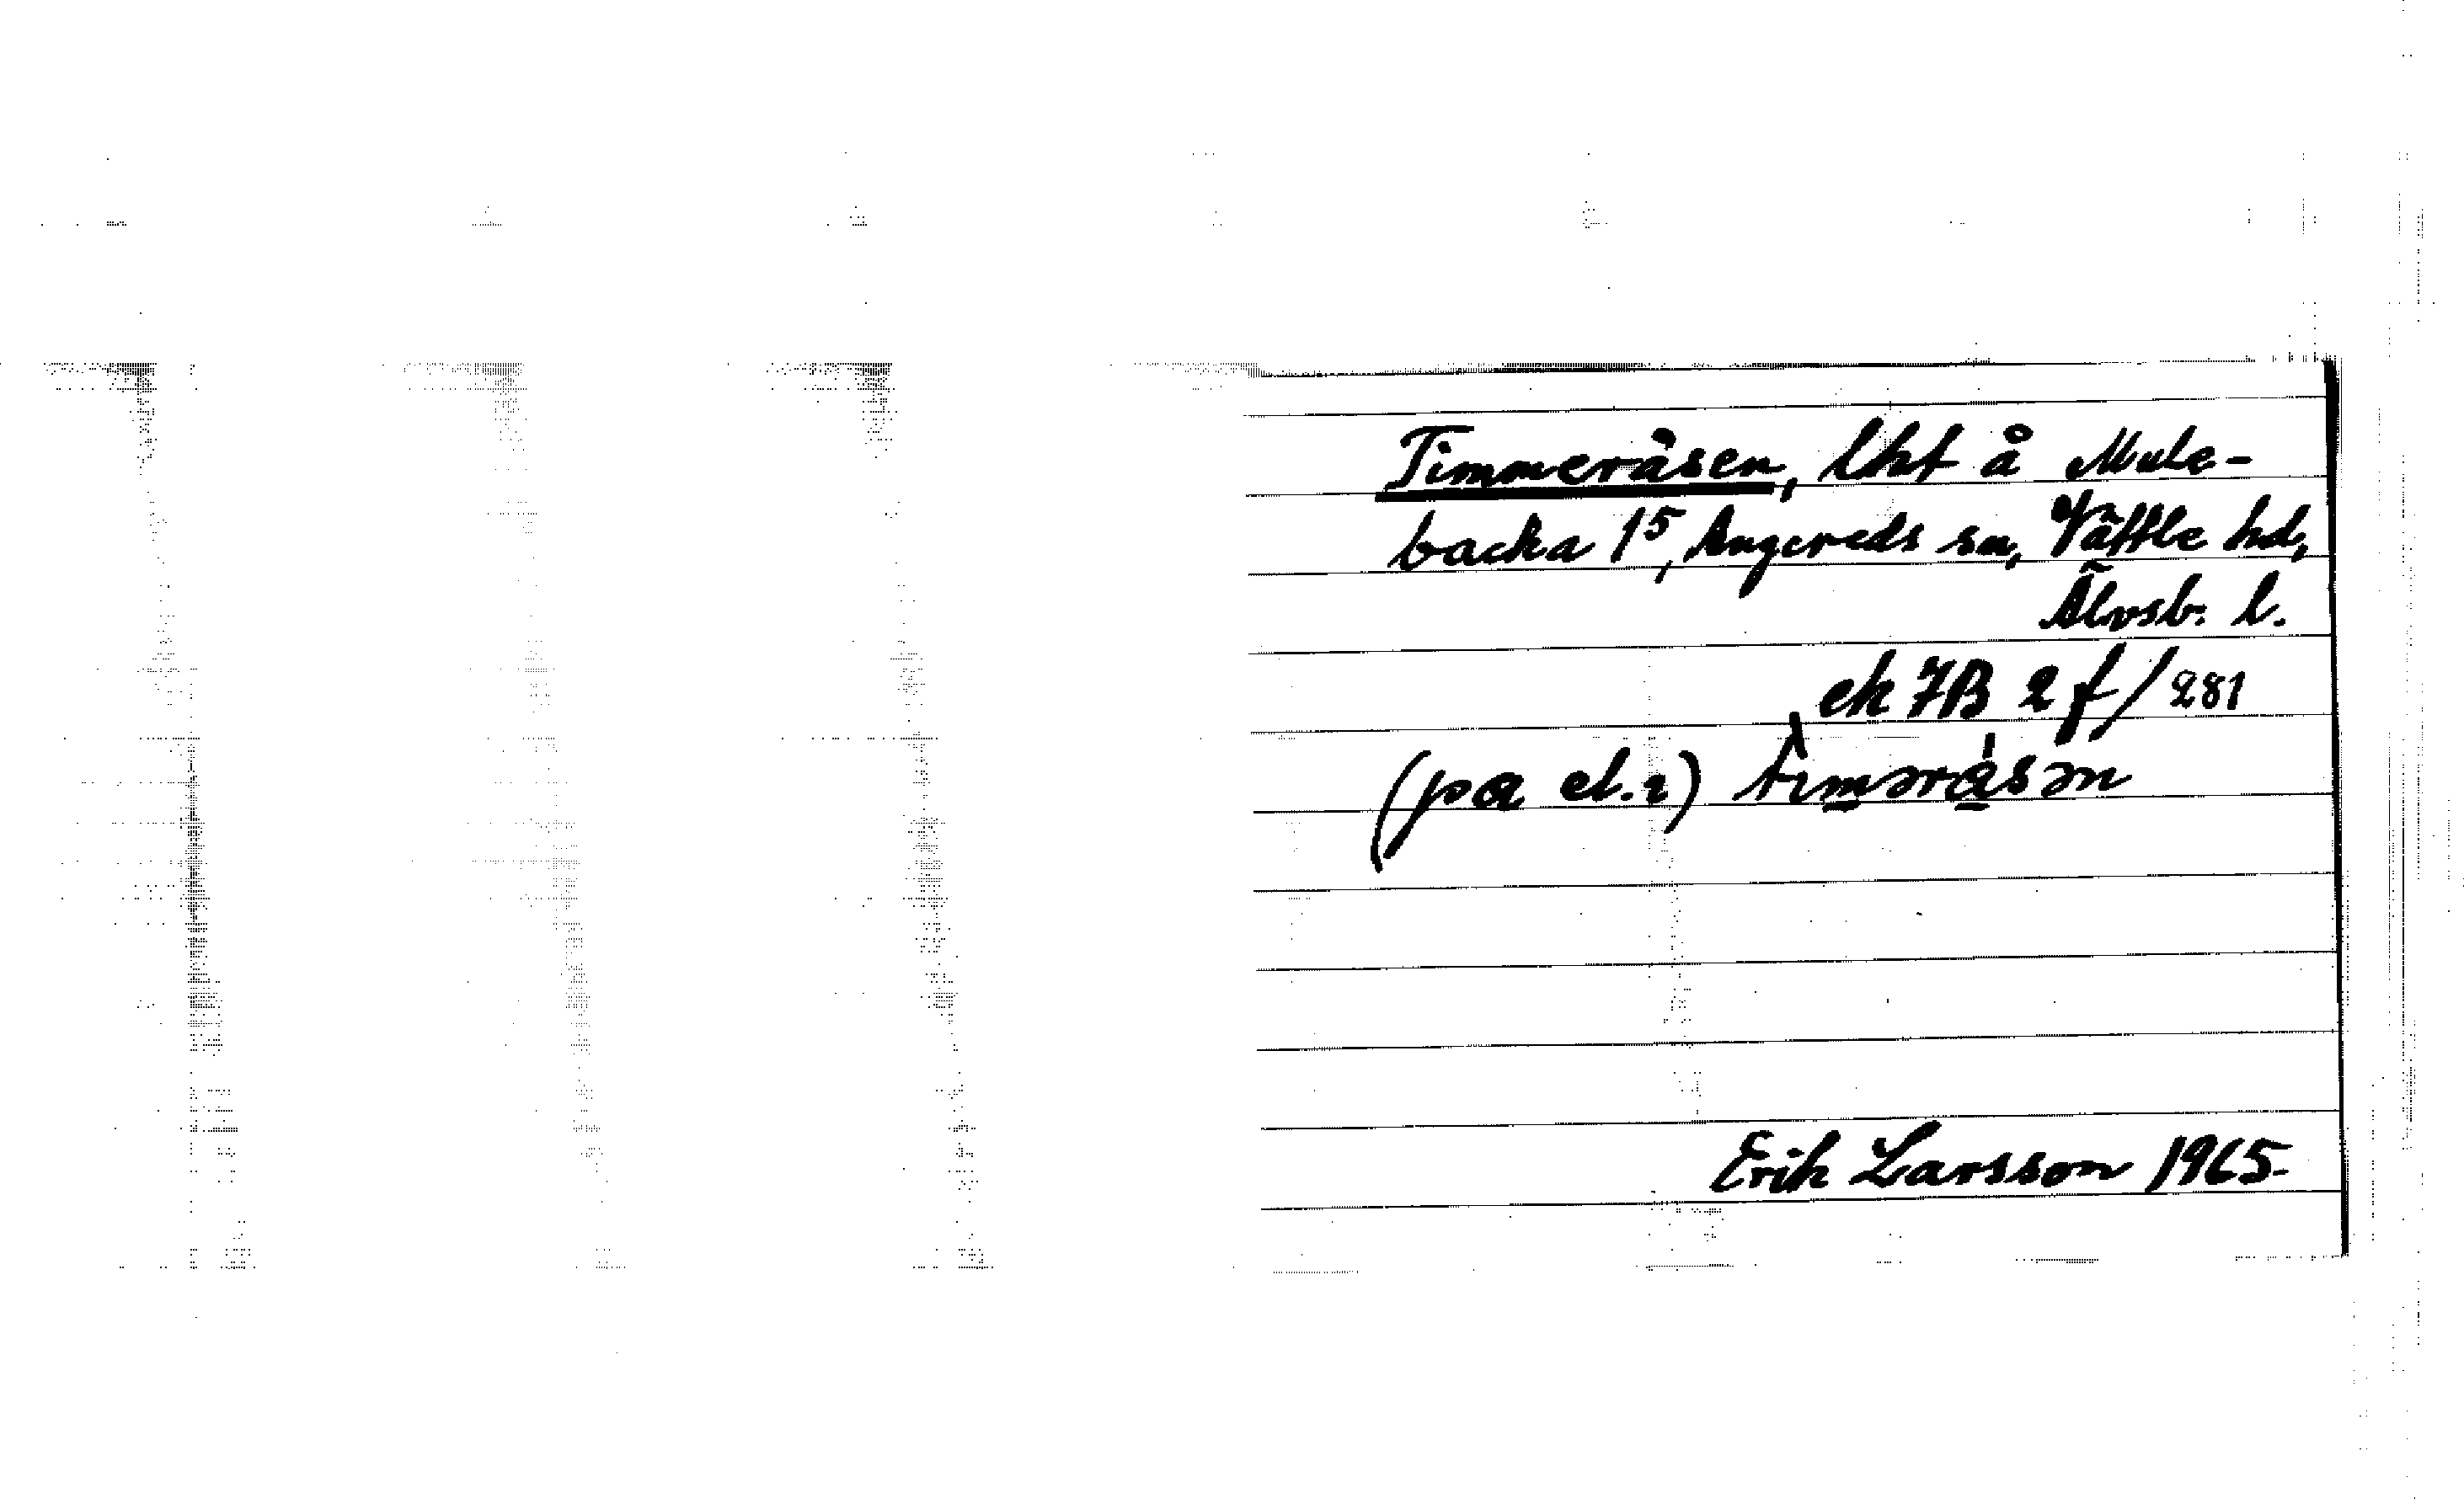 Timmeråsen, lht å Mule-
backa 1⁵, Angereds sn, Vättle hd,
Älvsb. l.
ek 7B 2 f/281
(pa el. ı) tımərásən
Erik Larsson 1965.